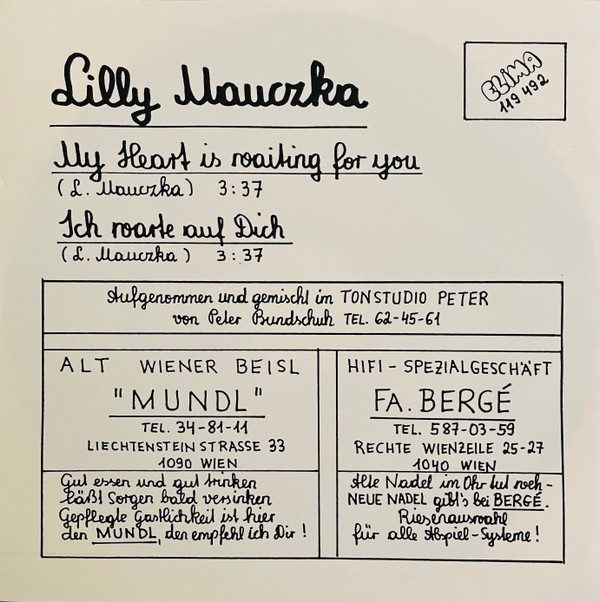 Lilly Mauczka
ELIMA
119 492
My Heart is waiting for you
(L. Mauczka) 3:37
Ich warte auf Dich
(L. Mauczka) 3:37
Aufgenommen und gemischt im TONSTUDIO PETER
von Peter Bundschuh TEL. 62-45-61
ALT WIENER BEISL
"MUNDL"
TEL. 34-81-11
LIECHTENSTEIN STRASSE 33
1090 WIEN
Gut essen und gut trinken
läßt Sorgen bald versinken
Gepflegte Gastlichkeit ist hier
den MUNDL, den empfehl ich Dir!
HIFI - SPEZIALGESCHÄFT
FA. BERGÉ
TEL. 587-03-59
RECHTE WIENZEILE 25-27
1040 WIEN
Alte Nadel im Ohr tut weh -
NEUE NADEL gibt's bei BERGÉ.
Riesenauswahl
für alle Abspiel-Systeme!